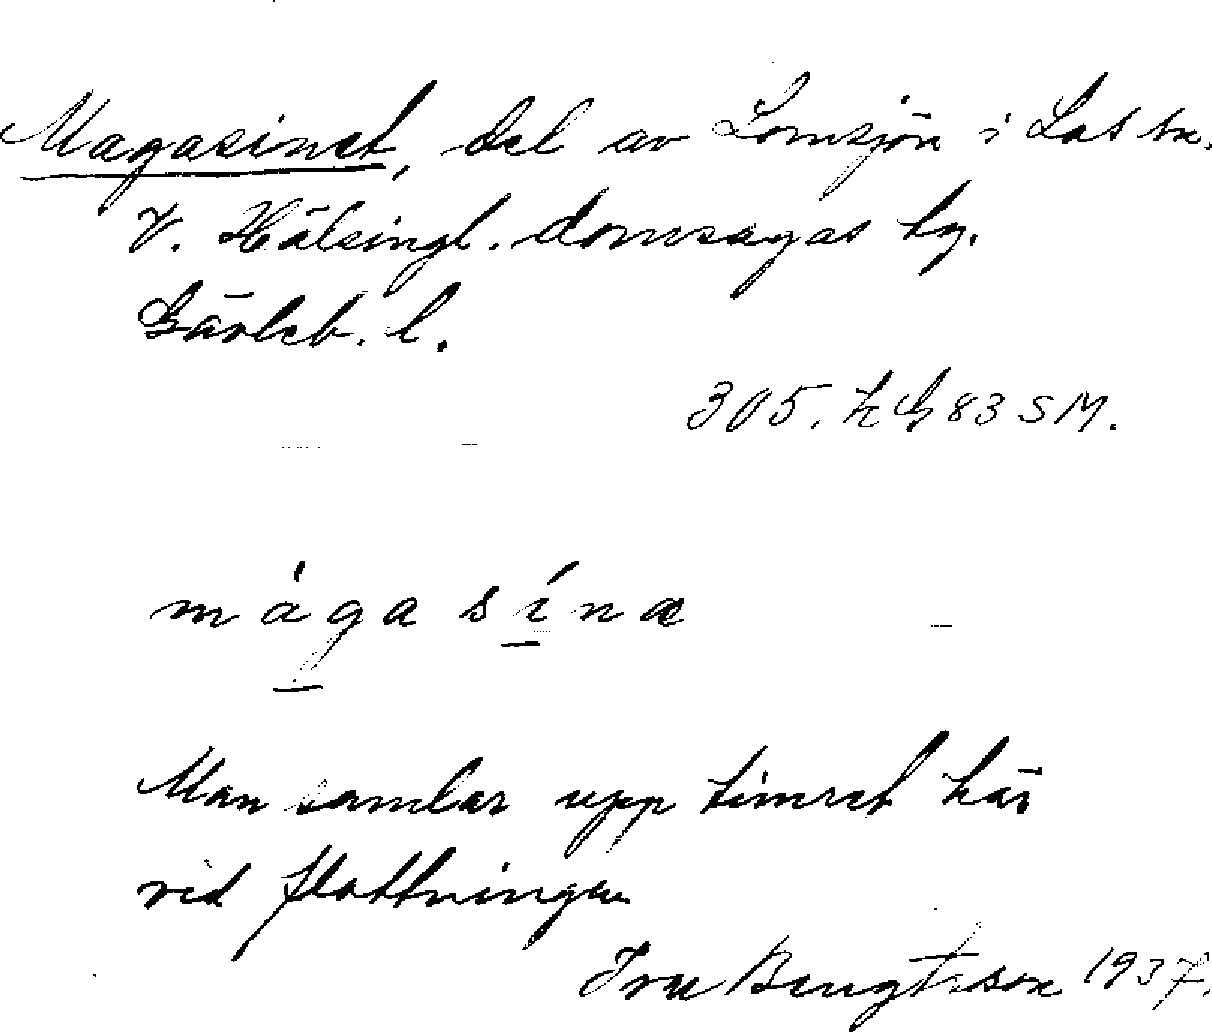 Magasinet, del av Lomsjön i Los sn.
V. Hälsingl. domsagas tg.
Gävleb. l.
305. h G 83 SM.
mágasínæ
Man samlar upp timret här
vid flottningen
Bengtsson 1937.